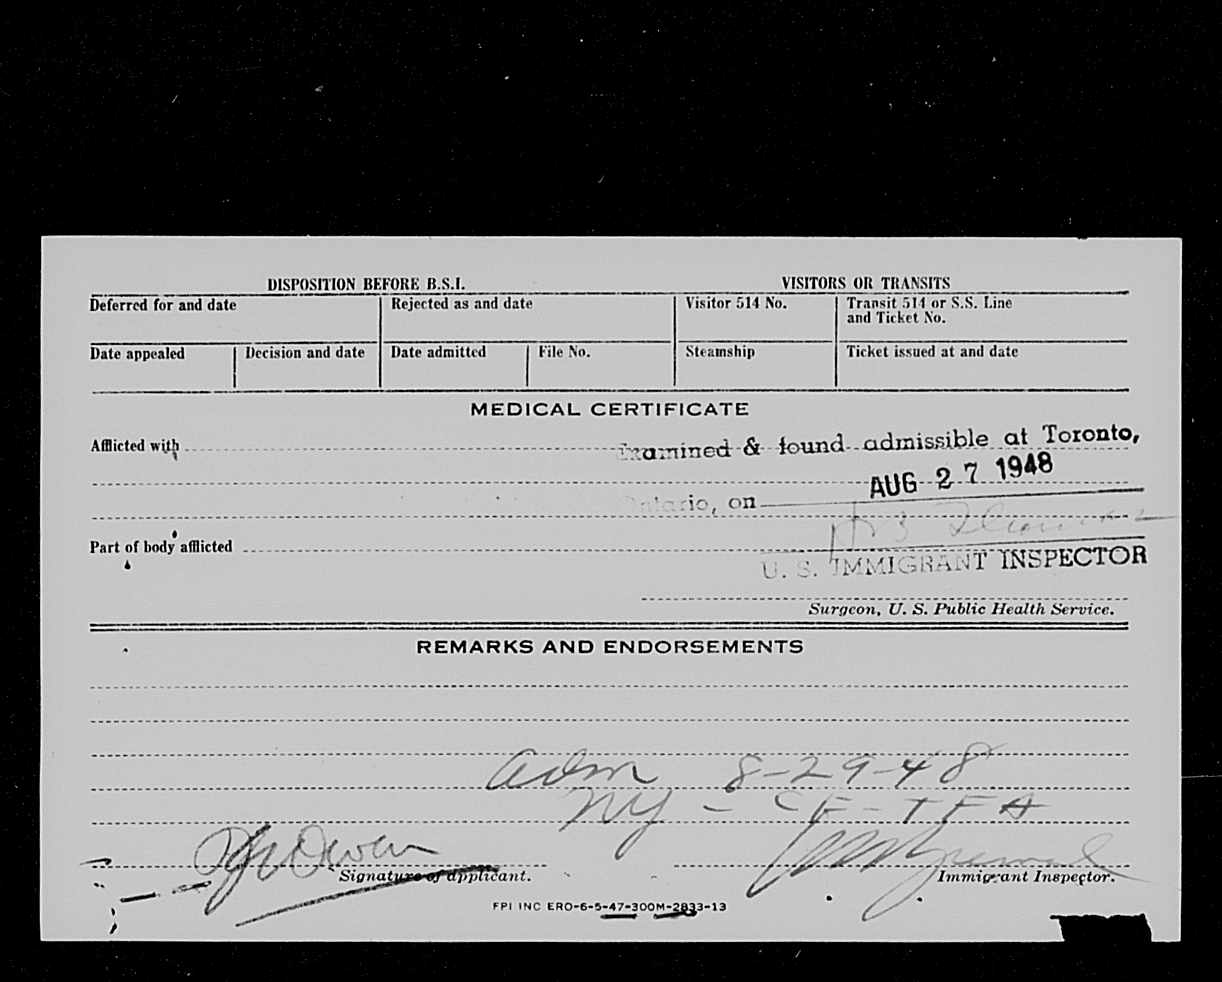 DISPOSITION BEFORE B.S.I. VISITORS OR TRANSITS
Deferred for and date Rejected as and date Visitor 514 No. Transit 514 or S.S. Line
and Ticket No.
Date appealed Decision and date Date admitted File No. Steamship Ticket issued at and date
MEDICAL CERTIFICATE
Afflicted with Examined & found admissible at Toronto,
Ontario, on AUG 27 1948
Part of body afflicted
U. S. IMMIGRANT INSPECTOR
Surgeon, U. S. Public Health Service.
REMARKS AND ENDORSEMENTS
adm 8-29-48
NY - CF-TFA
Owen
Signature of applicant. Immigrant Inspector.
FPI INC ERO-6-5-47-300M-2833-13